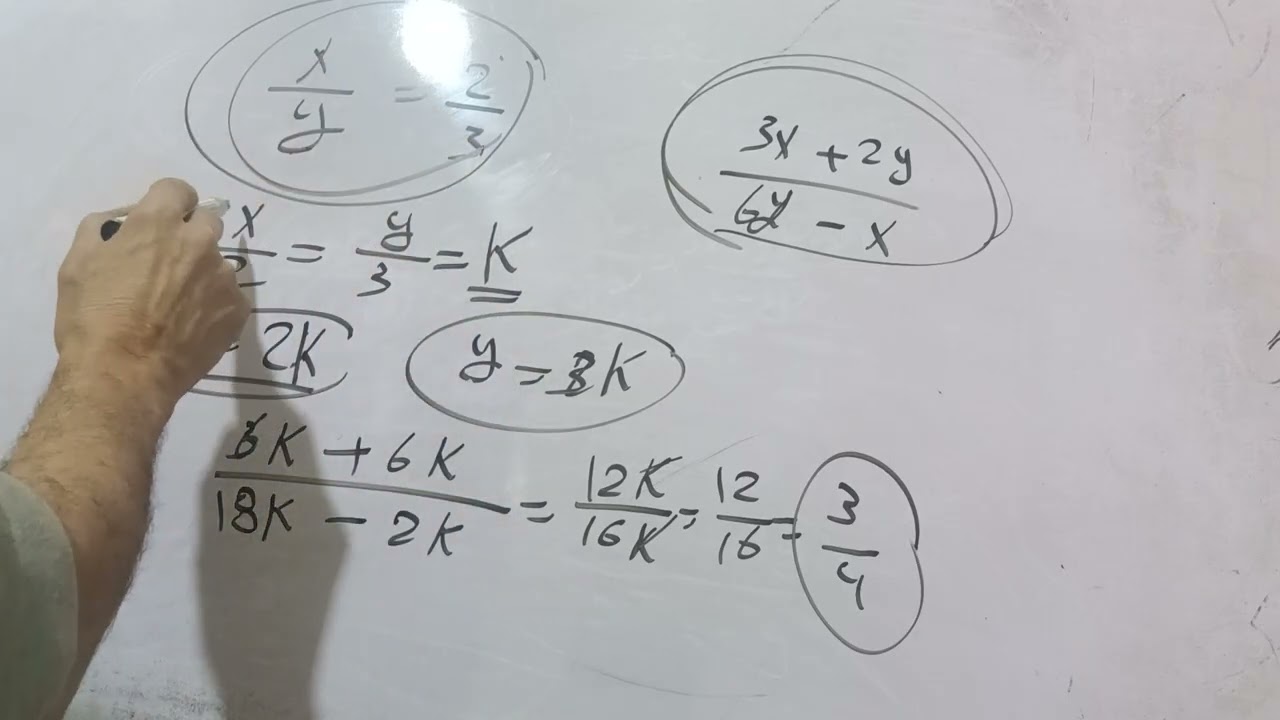 x/y = 2/3
(3x + 2y)/(6y - x)
x/2 = y/3 = K
= 2K
y = 3K
(6K + 6K)/(18K - 2K) = 12K/16K = 12/16 = 3/4